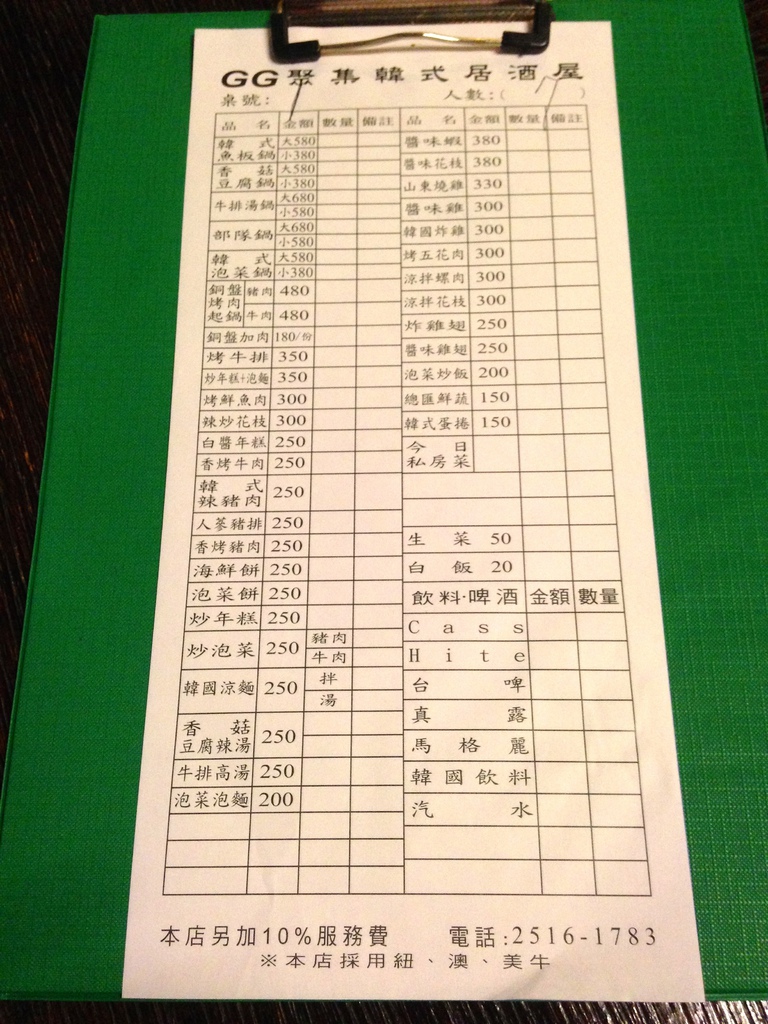 GG聚集韓式居酒屋
桌號: 人數:( )
品名 金額 數量 備註
韓式魚板鍋 大580 小380
香菇豆腐鍋 大580 小380
牛排湯鍋 大680 小580
部隊鍋 大680 小580
韓式泡菜鍋 大580 小380
銅盤烤肉起鍋 豬肉 480
牛肉 480
銅盤加肉 180/份
烤牛排 350
炒年糕+泡麵 350
烤鮮魚肉 300
辣炒花枝 300
白醬年糕 250
香烤牛肉 250
韓式辣豬肉 250
人蔘豬排 250
香烤豬肉 250
海鮮餅 250
泡菜餅 250
炒年糕 250
炒泡菜 250 豬肉 牛肉
韓國涼麵 250 拌 湯
香菇豆腐辣湯 250
牛排高湯 250
泡菜泡麵 200
品名 金額 數量 備註
醬味蝦 380
醬味花枝 380
山東燒雞 330
醬味雞 300
韓國炸雞 300
烤五花肉 300
涼拌螺肉 300
涼拌花枝 300
炸雞翅 250
醬味雞翅 250
泡菜炒飯 200
總匯鮮蔬 150
韓式蛋捲 150
今日私房菜
生菜 50
白飯 20
飲料·啤酒 金額 數量
Cass
Hite
台啤
真露
馬格麗
韓國飲料
汽水
本店另加10%服務費 電話:2516-1783
※本店採用紐、澳、美牛